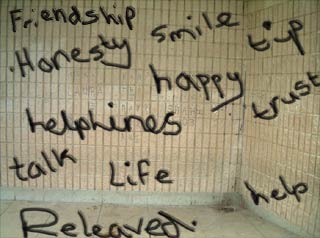 Friendship
smile
tip
Honesty
happy
trust
helphines
talk
Life
help
Releaved.